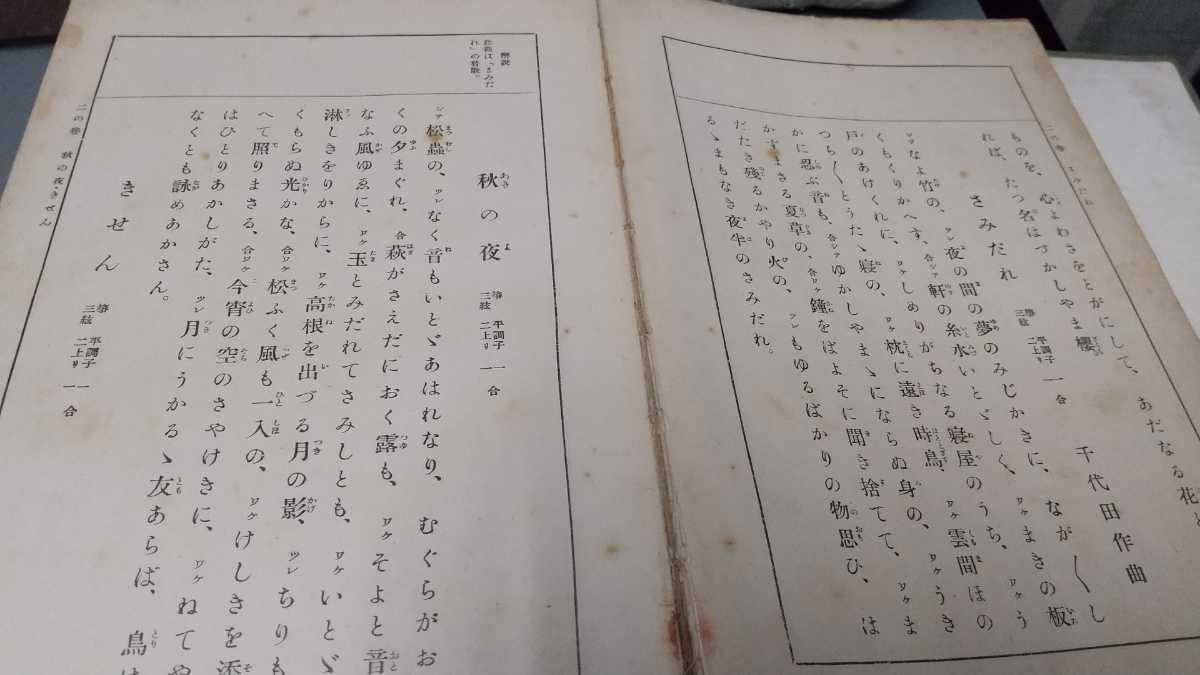 二の巻 さみだれ
ものを、心よわさをとがにして、あだなる花と
れば、たつ名はづかしやま櫻
さみだれ 箏 平調子 三絃 二上リ 一合 千代田作曲
ツレ夜の間の夢のみじかきに、なが〳〵し
ツヾなよ竹の、
くもくりかへす、合シテ軒の糸水いとゞしく、ワケまきの板
戸のあけくれに、ワケしめりがちなる寝屋のうち、ワケう
つら〳〵とうたゝ寝の、ワケ枕に遠き時鳥、ワケ雲間ほの
かに忍ぶ音も、合シテゆかしやまゝにならぬ身の、ワケうき
かずまさる夏草の、合ワケ鐘をばよそに聞き捨てて、ワケま
だたき殘るかやり火の、ツレもゆるばかりの物思ひ、は
るゝまもなき夜半のさみだれ。
解説
此曲は「さみだ
れ」の替歌。
二の巻 秋の夜・きせん
秋の夜 箏 平調子 三絃 二上リ 一合
シテ松蟲の、ツレなく音もいとゞあはれなり、むぐらがお
くの夕まぐれ、合萩がさえだにおく露も、ワケそよと音
なふ風ゆゑに、ワケ玉とみだれてさみしとも、ワケいとゞ
淋しきをりからに、ワケ高根を出づる月の影、ツレちりも
くもらぬ光かな、合ワケ松ふく風も一入の、ワケけしきを添
へて照りまさる、合ワケ今宵の空のさやけきに、ワケねてや
はひとりあかしがた、ツレ月にうかるゝ友あらば、鳥は
なくとも詠めあかさん。
きせん 箏 平調子 三絃 二上リ 一合